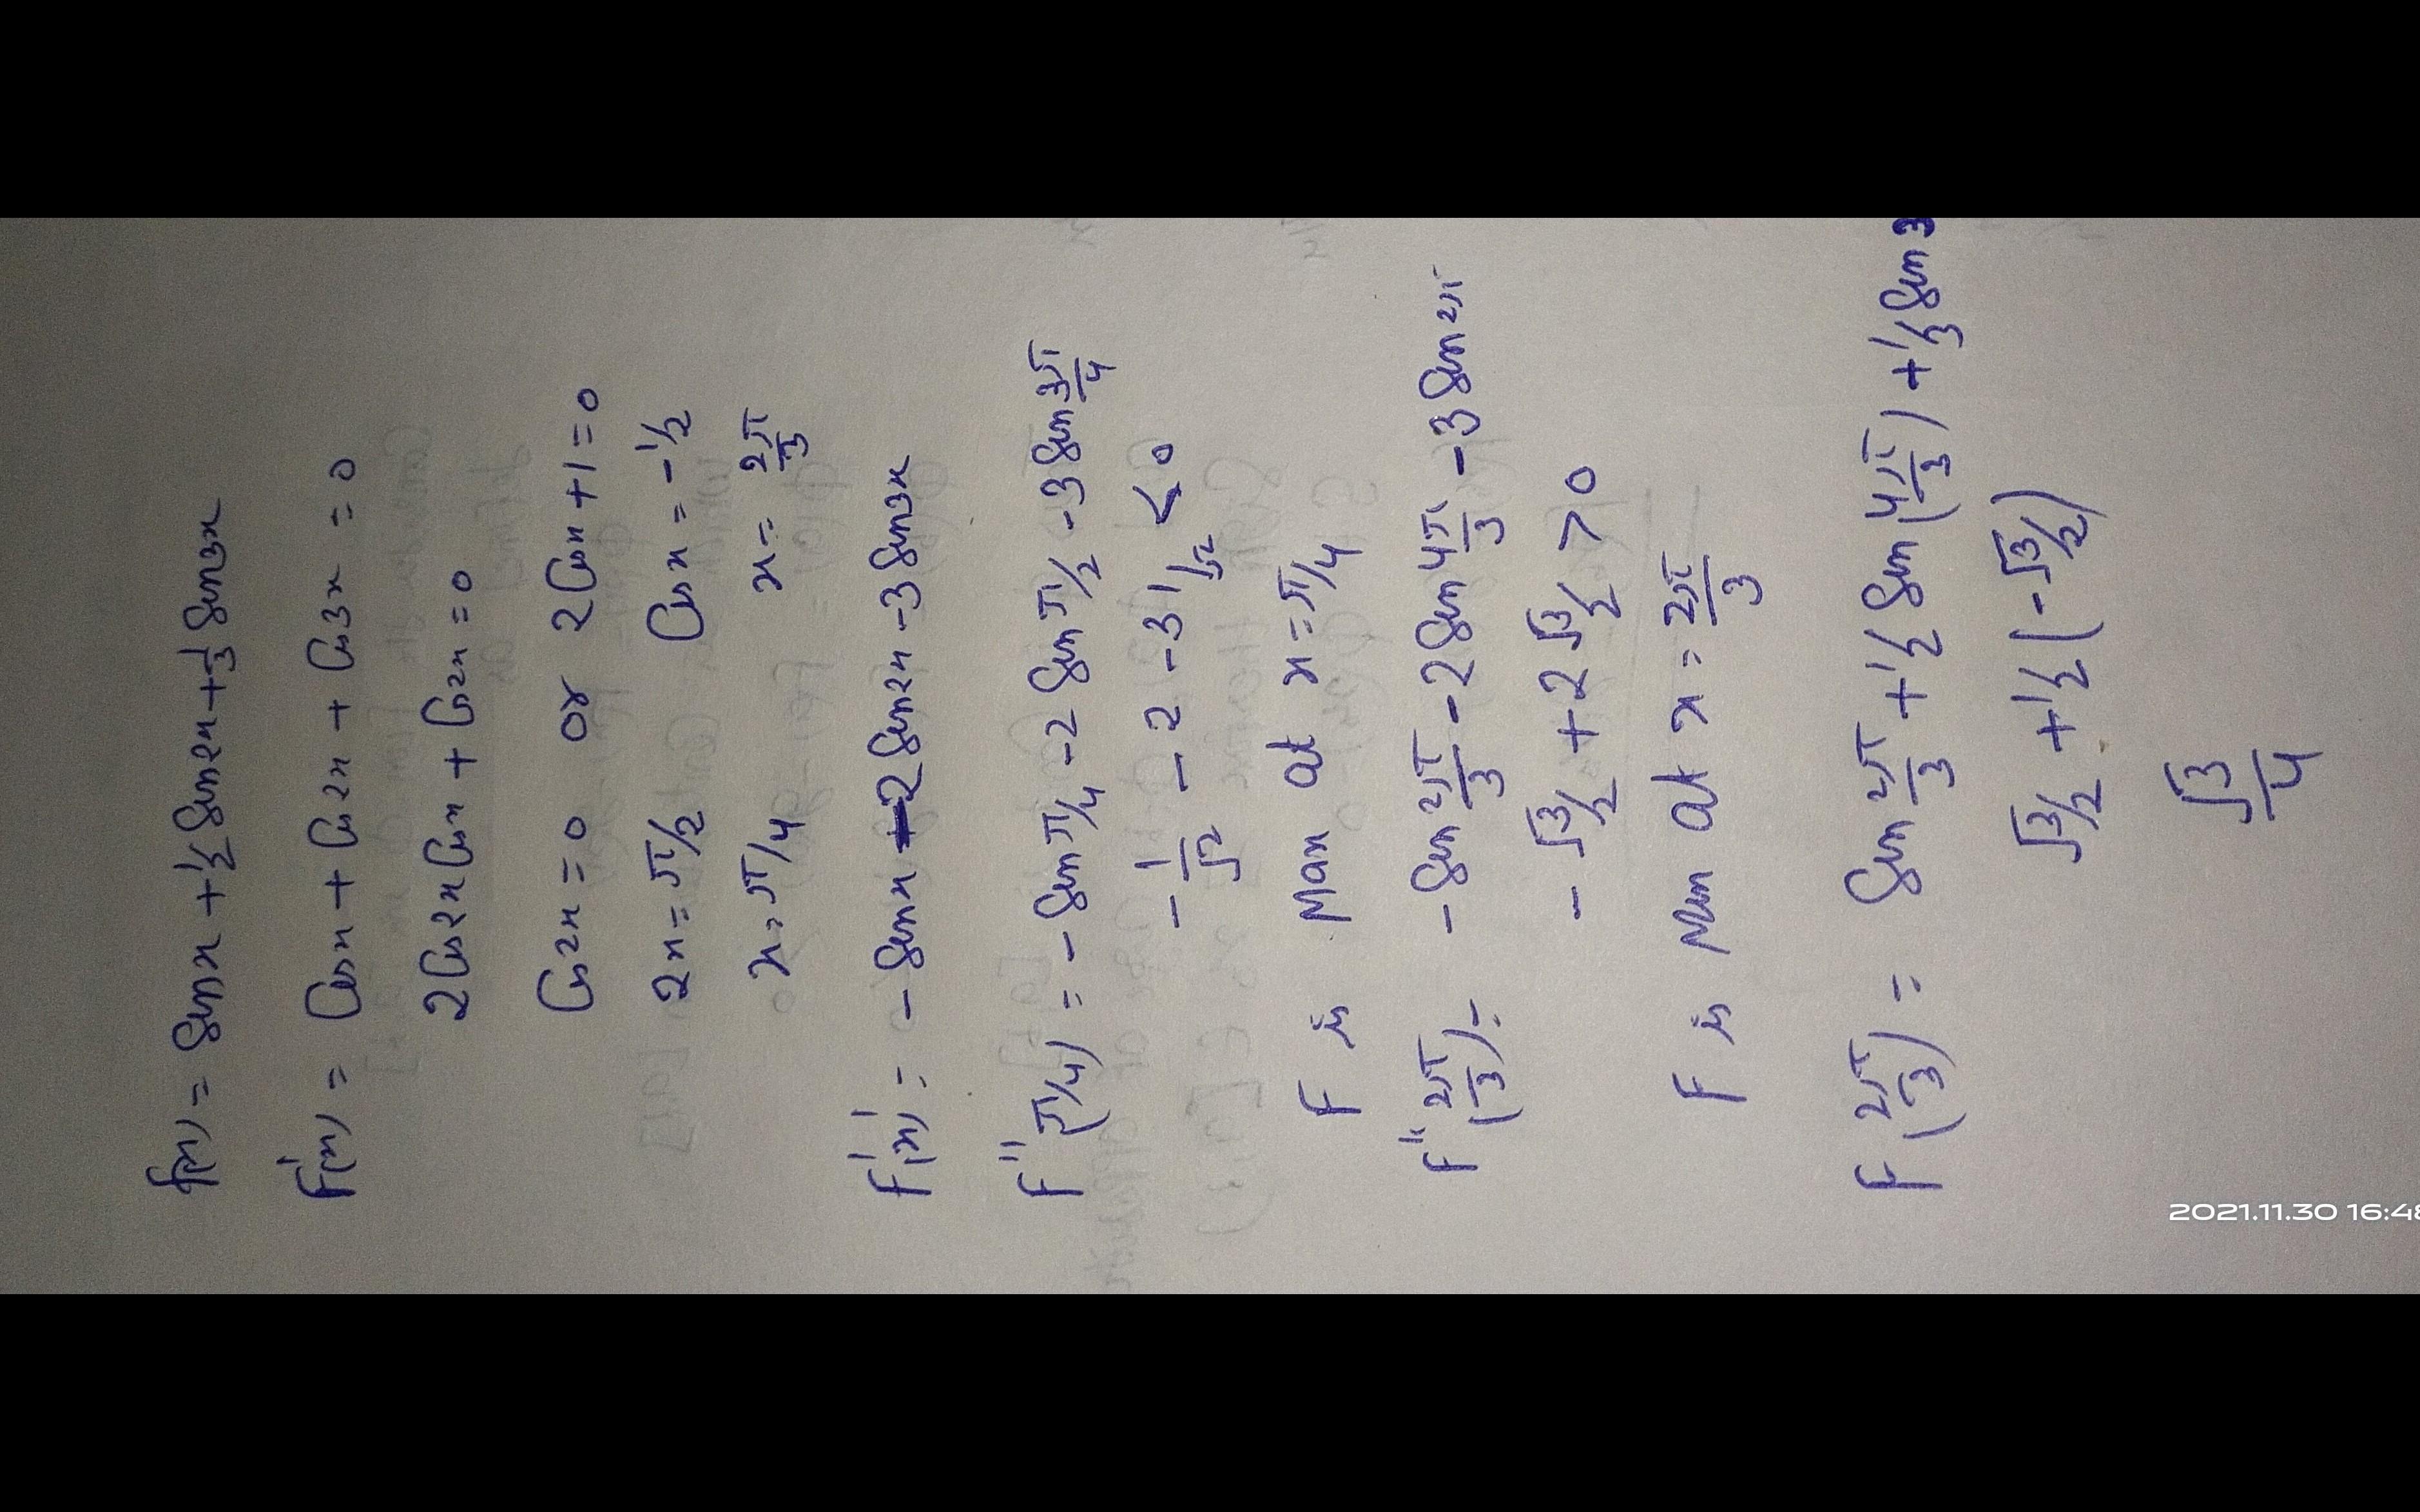 f(x) = Sinx + 1/2 Sin2x + 1/3 Sin3x
F'(x) = Cosx + Cos2x + Cos3x = 0
2Cos2xCosx + Cos2x = 0
Cos2x = 0 or 2Cosx + 1 = 0
2x = π/2 Cosx = -1/2
x = π/4 x = 2π/3
F''(x) = -Sinx - 2Sin2x - 3Sin3x
F''(π/4) = -Sinπ/4 - 2Sinπ/2 - 3Sin3π/4
-1/√2 - 2 - 3 1/√2 < 0
F is Max at x = π/4
F''(2π/3) = -Sin2π/3 - 2Sin4π/3 - 3Sin2π
-√3/2 + 2√3/2 > 0
F is Min at x = 2π/3
F(2π/3) = Sin2π/3 + 1/2 Sin(4π/3) + 1/3 Sin3
√3/2 + 1/2(-√3/2)
√3/4
2021.11.30 16:48